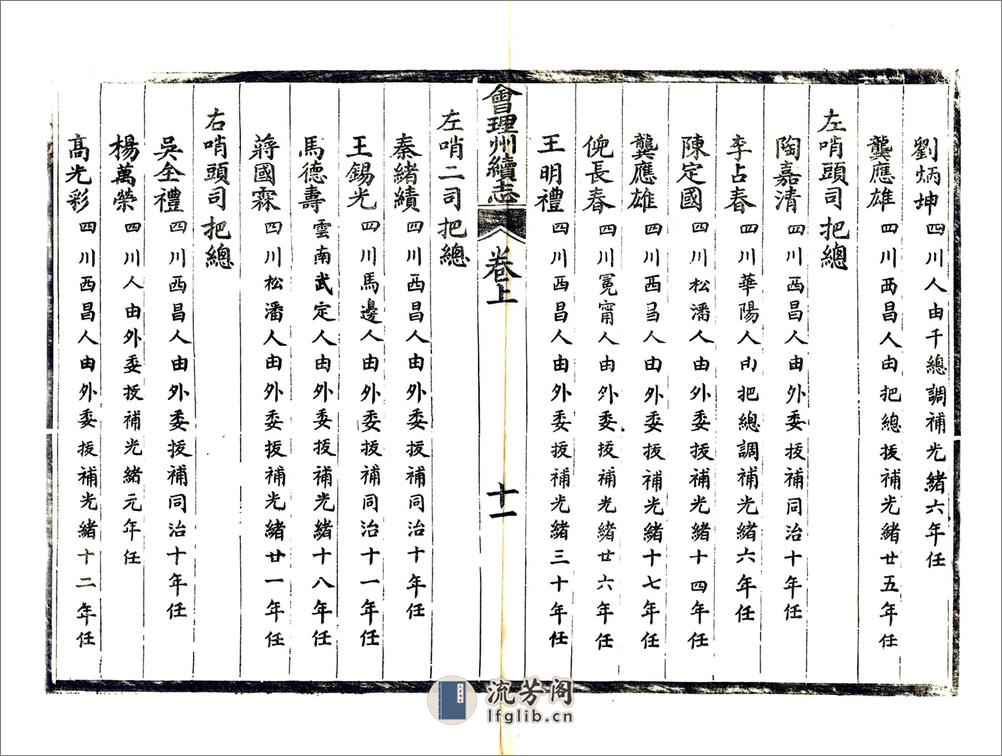 劉炳坤 四川人由千總調補光緒六年任
龔應雄 四川西昌人由把總拔補光緒廿五年任
左哨頭司把總
陶嘉清 四川西昌人由外委拔補同治十年任
李占春 四川華陽人由把總調補光緒六年任
陳定國 四川松潘人由外委拔補光緒十四年任
龔應雄 四川西昌人由外委拔補光緒十七年任
倪長春 四川冕甯人由外委拔補光緒廿六年任
王明禮 四川西昌人由外委拔補光緒三十年任
會理州續志 卷上 十一
左哨二司把總
秦緒績 四川西昌人由外委拔補同治十年任
王錫光 四川馬邊人由外委拔補同治十一年任
馬德壽 雲南武定人由外委拔補光緒十八年任
蔣國霖 四川松潘人由外委拔補光緒廿一年任
右哨頭司把總
吳全禮 四川西昌人由外委拔補同治十年任
楊萬榮 四川人由外委拔補光緒元年任
高光彩 四川西昌人由外委拔補光緒十二年任
流芳阁
lfglib.cn